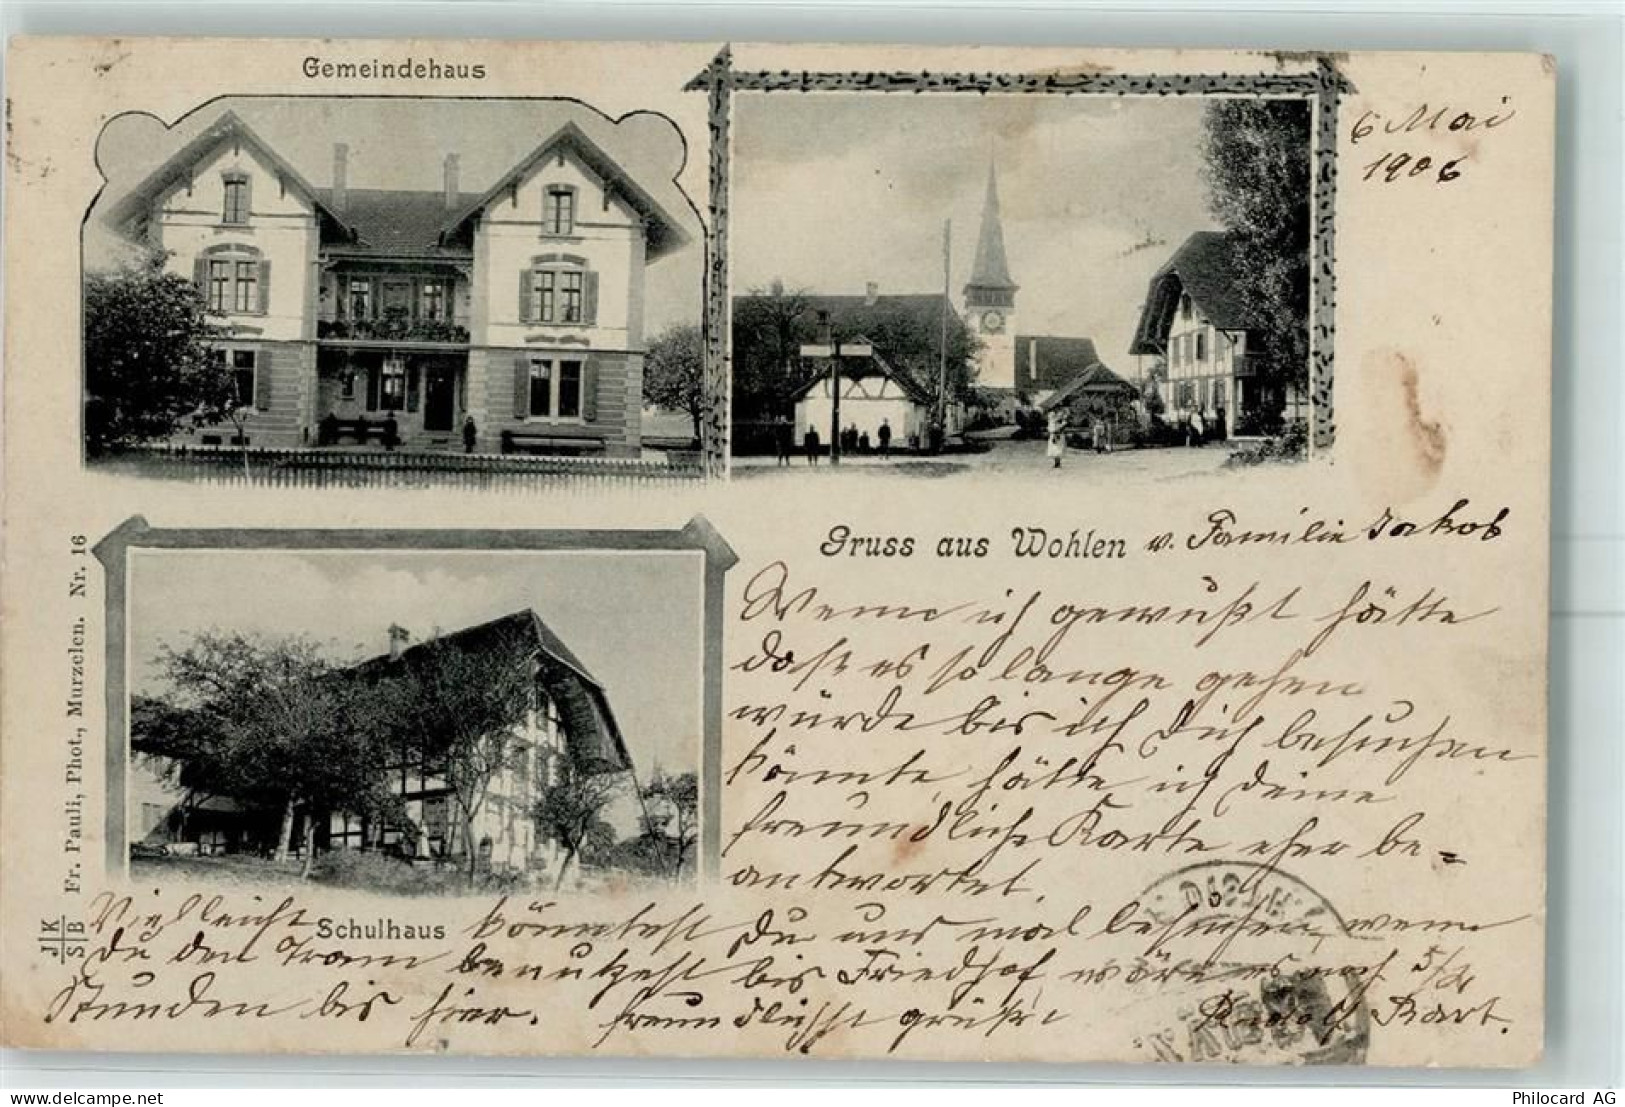 Gemeindehaus
6 Mai
1906
Gruss aus Wohlen v. Familie Jakob
Wenn ich gewußt hätte
daß es so lange gehen
würde bis ich Dich besuchen
könnte, hätte ich deine
freundliche Karte eher be=
antwortet.
Schulhaus
Vielleicht könntest Du uns mal besuchen, wenn
Du den Tram benutzest bis Friedhof, wäre es noch 5/4
Stunden bis hier. freundlichst grüßt Rudolf
Fr. Pauli, Phot., Murzelen. Nr. 16
J K
S B
Philocard AG